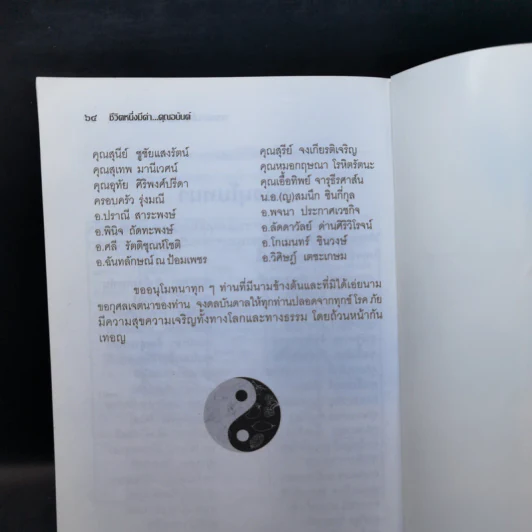 ๖๔ ชีวิตหนึ่งมีค่า...คุณอนันต์
คุณสุนีย์ ชูชัยแสงรัตน์ คุณสุรีย์ จงเกียรติเจริญ
คุณสุเทพ มานีเวศน์ คุณหมอกฤษณา โรหิตรัตนะ
คุณอุทัย ศิริพงศ์ปรีดา คุณเอื้อทิพย์ จารุธีรศาส์น
ครอบครัว รุ่งมณี น.อ.(ญ)สมนึก ชินกี่กุล
อ.ปราณี สาระพงษ์ อ.พจนา ประกาศเวชกิจ
อ.พินิจ ถัดทะพงษ์ อ.ลัดดาวัลย์ ด่านศิริวิโรจน์
อ.ศลี รัตติชุณห์โชติ อ.โกเมนทร์ ชินวงษ์
อ.ฉันทลักษณ์ ณ ป้อมเพชร อ.วิศิษฏ์ เตชะเกษม
ขออนุโมทนาทุก ๆ ท่านที่มีนามข้างต้นและที่มิได้เอ่ยนาม
ขอกุศลเจตนาของท่าน จงดลบันดาลให้ทุกท่านปลอดจากทุกข์ โรค ภัย
มีความสุขความเจริญทั้งทางโลกและทางธรรม โดยถ้วนหน้ากัน
เทอญ